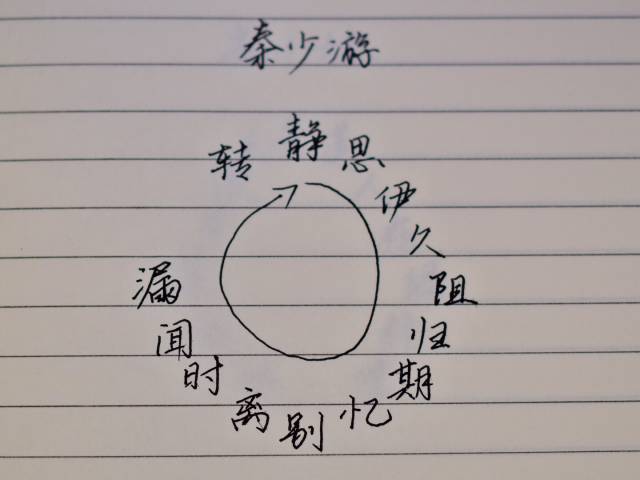 秦少游
静思伊久阻归期忆别离时闻漏转